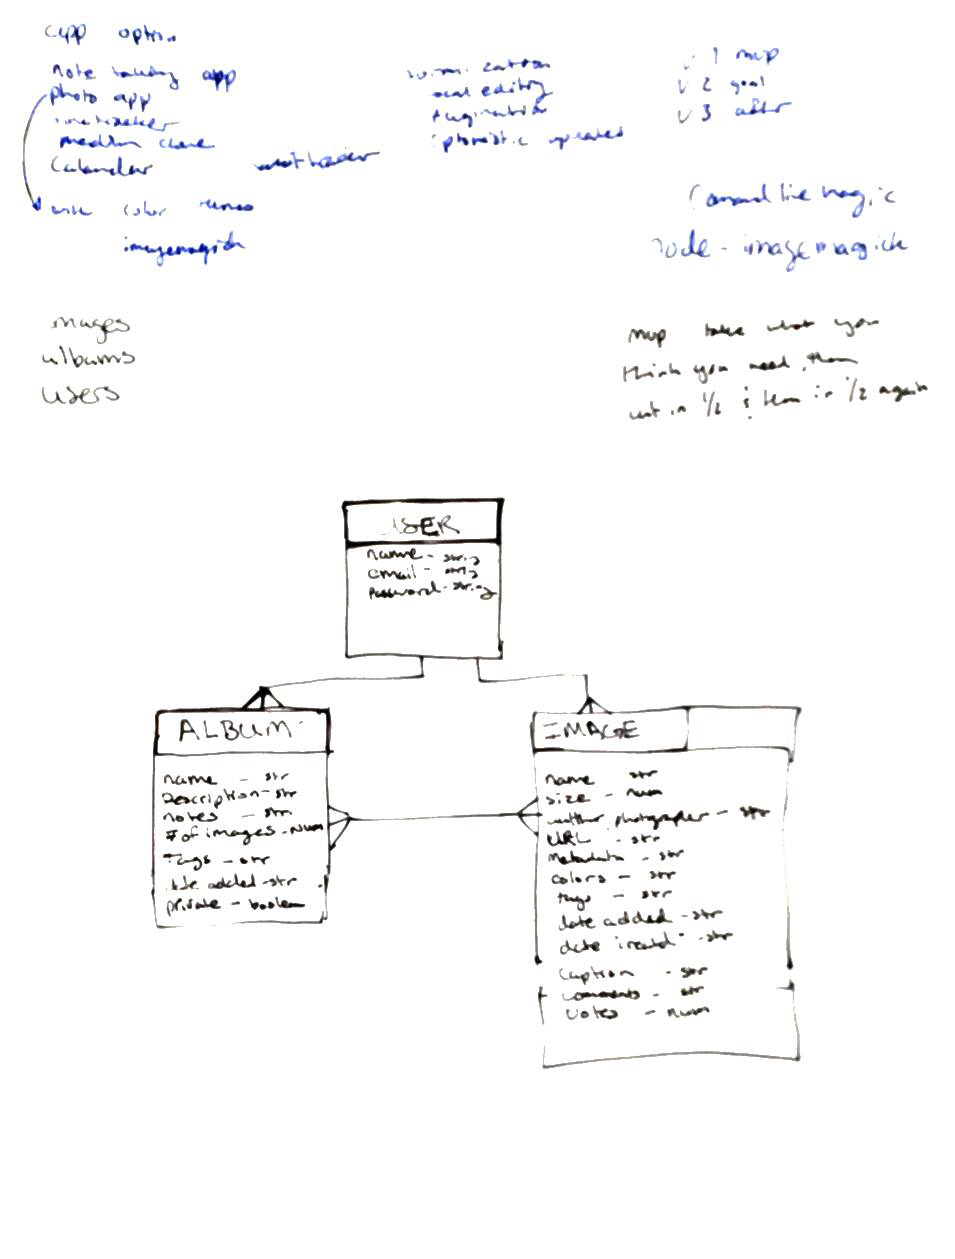 app option
note taking app
photo app
timetracker
medium clone
Calander
color
imagemagick
local editing
optomistic updates
v 1 mvp
v 2 goal
v 3 after
Command line magic
node - imagemagick
images
albums
users
mvp take what you
think you need, then
cut in 1/2 & then in 1/2 again
USER
name - string
email - string
password - string
ALBUM
name - str
Description - str
notes - str
# of images - Num
Tags - str
date added - str
private - boolean
IMAGE
name str
size - num
author photographer - str
URL - str
Metadata - str
colors - str
tags - str
date added - str
date - str
caption - str
comments - str
votes - num